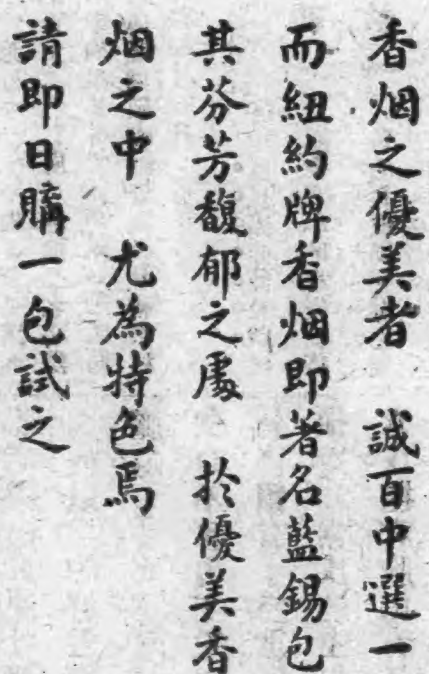 香烟之優美者　誠百中選一
而紐約牌香烟即著名藍錫包
其芬芳馥郁之處　於優美香
烟之中　尤為特色焉
請即日購一包試之